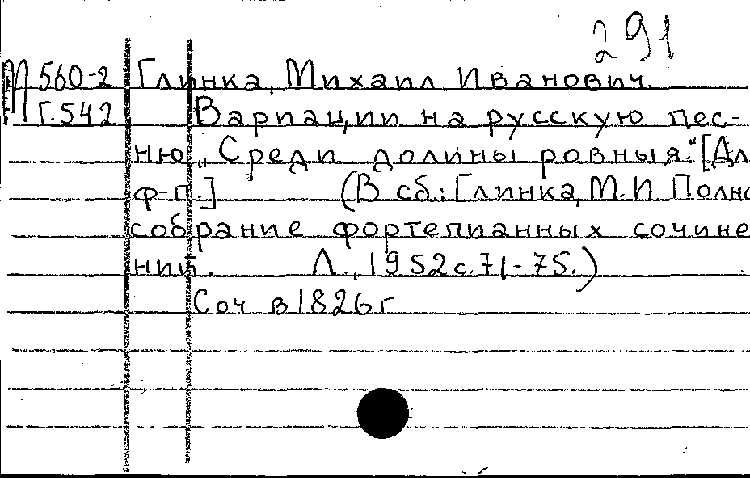 291
М 560-2 Глинка, Михаил Иванович.
Г.542 Вариации на русскую пес-
ню „Среди долины ровныя." [Дл
ф-п.] (В сб.: Глинка, М.И. Полно
собрание фортепианных сочине
ний. Л., 1952 с. 71-75.)
Соч в 1826 г